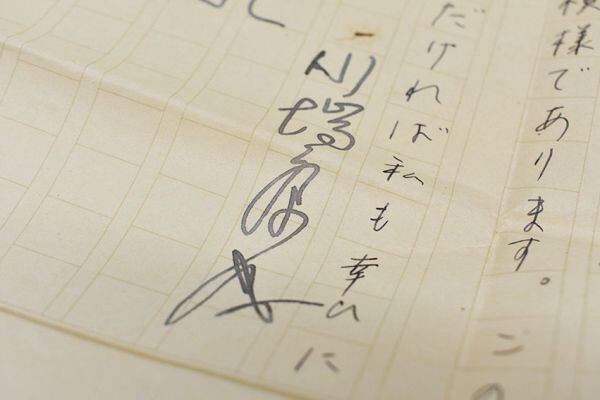 様であります。ご
だければ私も幸いに
川端康成